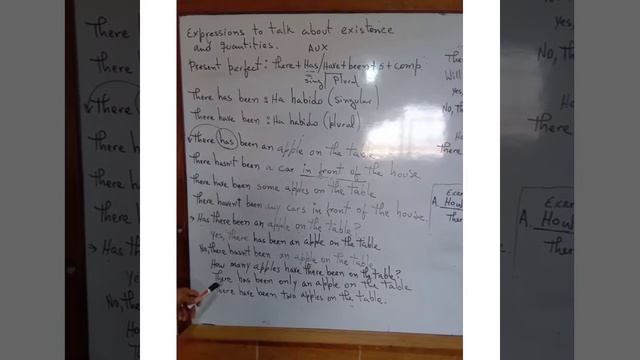 Expressions to talk about existence
and quantities.
AUX
Present perfect: there + Has/Have + been + s + comp.
sing Plural
There has been: Ha habido (singular)
There have been: Ha habido (plural)
There has been an apple on the table
There hasn't been a car in front of the house
There have been some apples on the table
There haven't been any cars in front of the house.
Has there been an apple on the table?
Yes, there has been an apple on the table
No, there hasn't been an apple on the table
How many apples have there been on the table?
There has been only an apple on the table
There have been two apples on the table.
The
Will
Yes,
No, Th
He
Exam
A. How
Ther